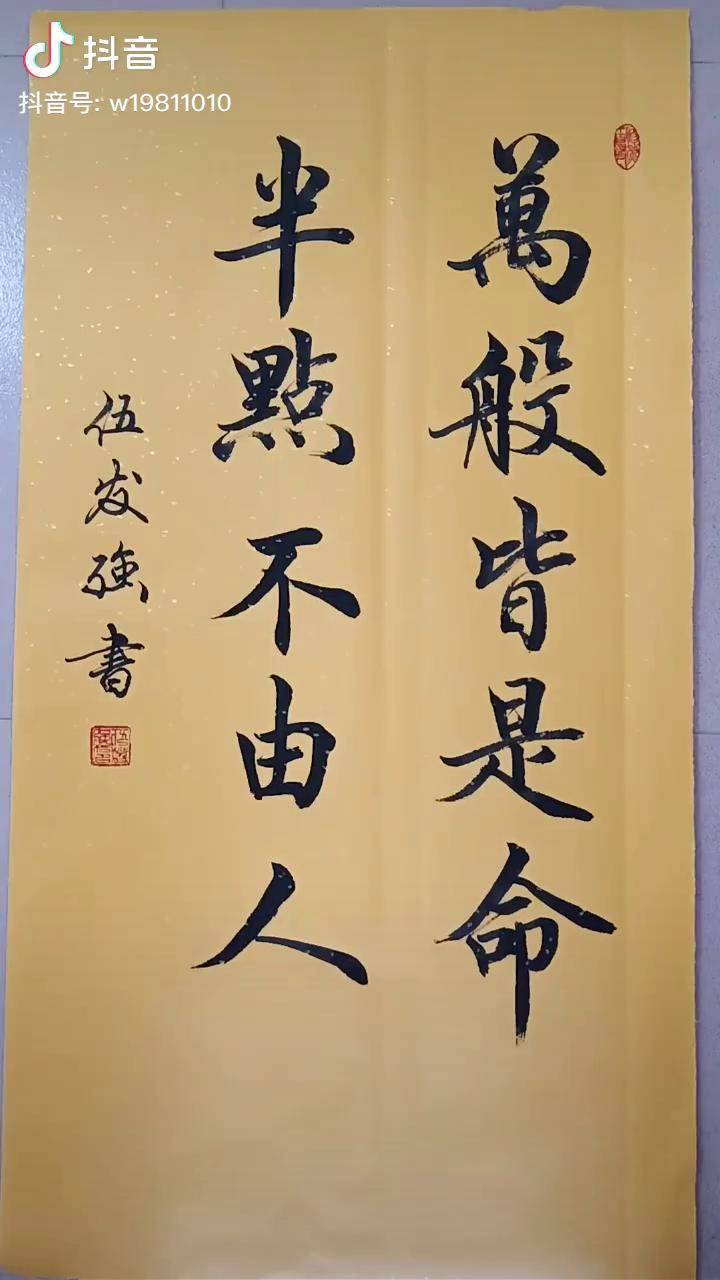 抖音
抖音号: w19811010
萬般皆是命
半點不由人
伍发强書